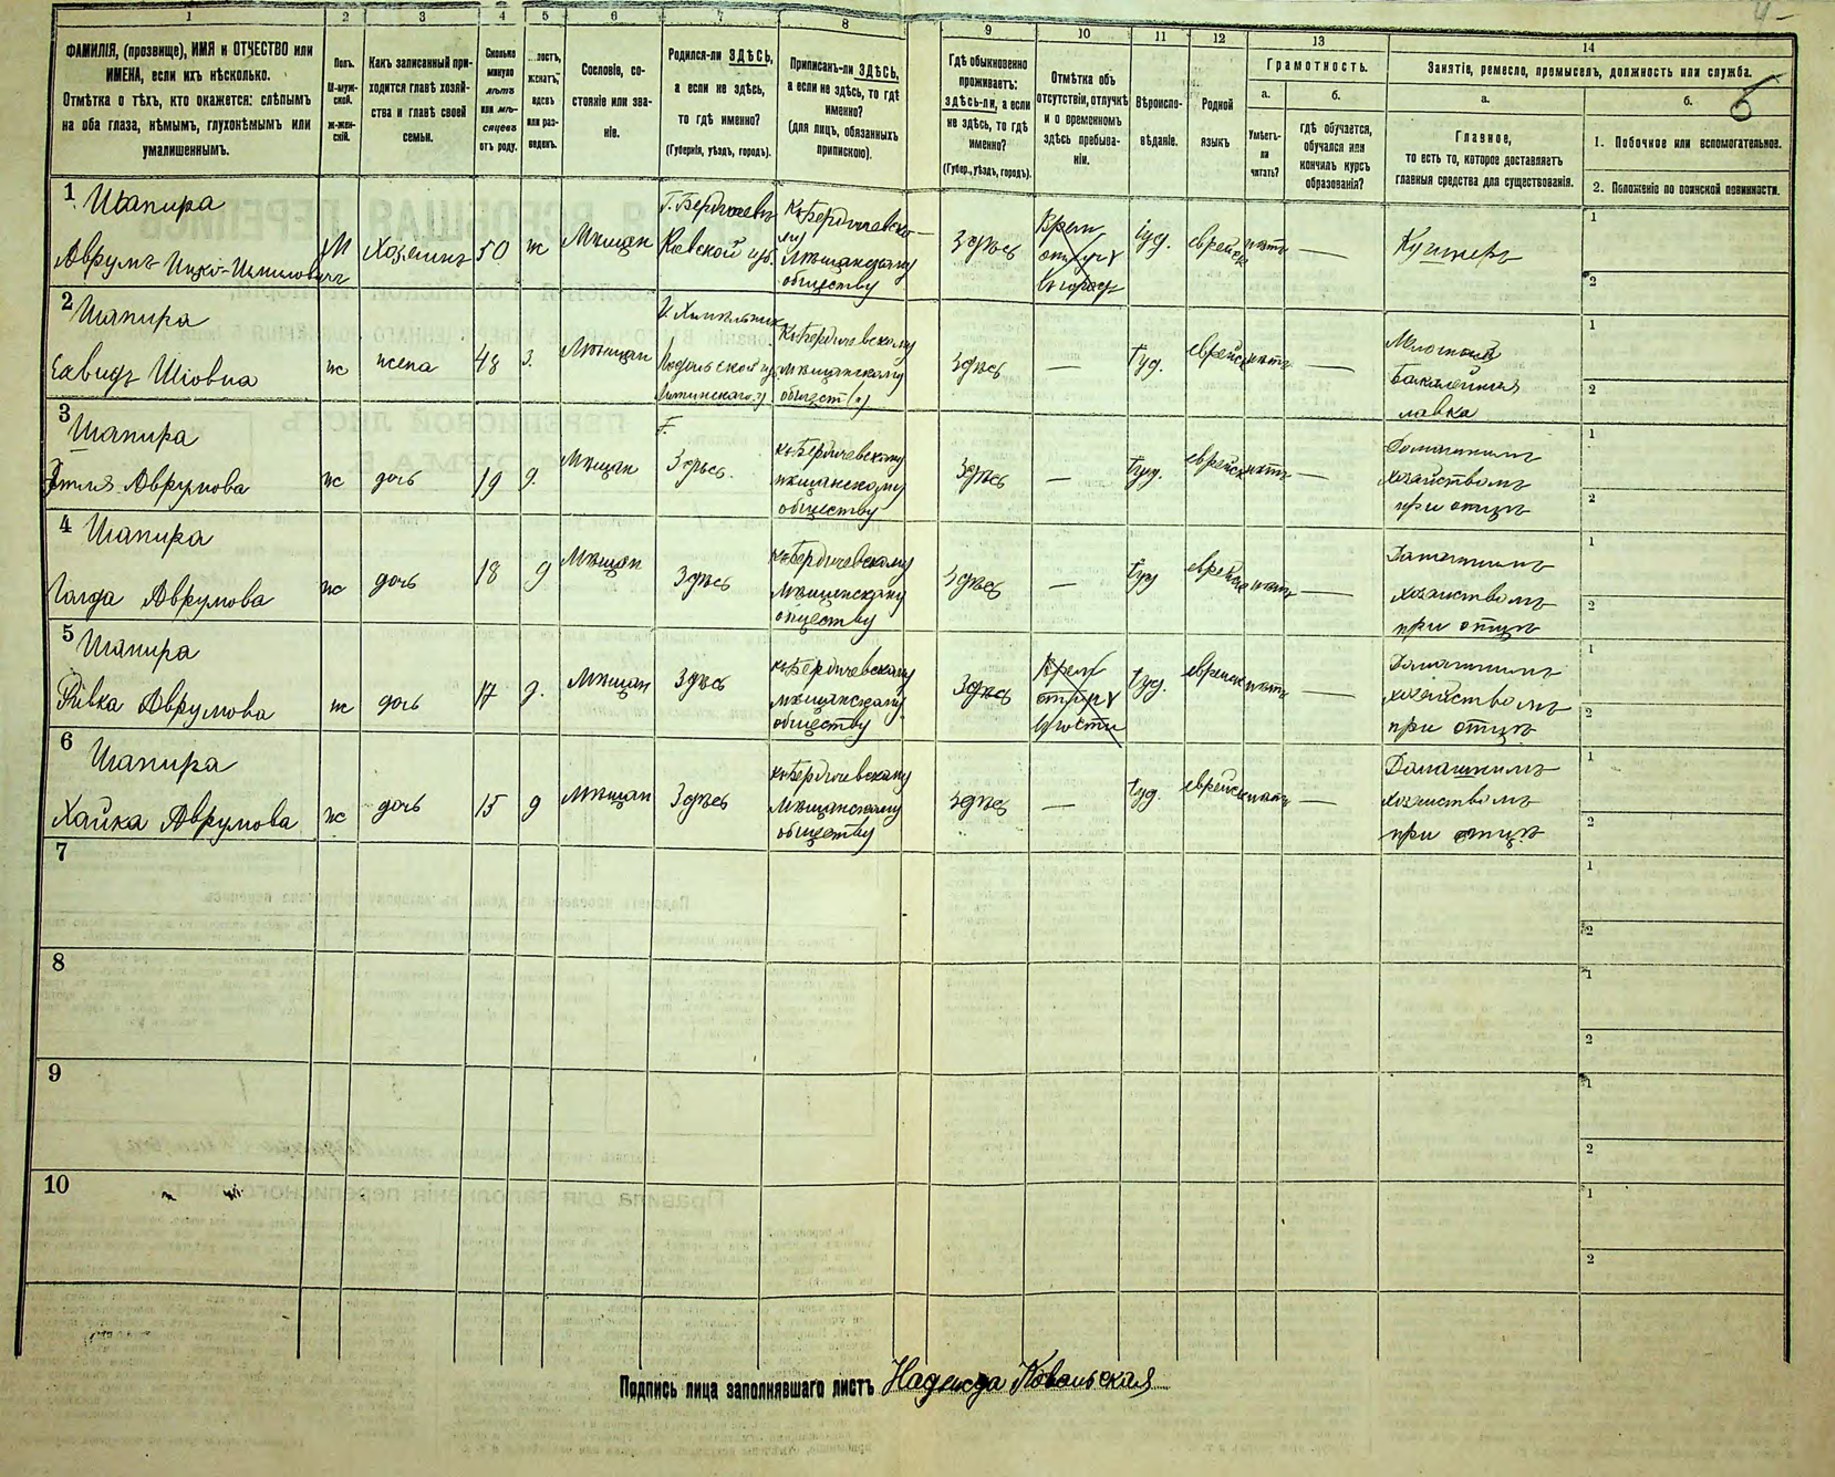 1
2
3
4
5
6
7
8
9
10
11
12
13
14
ФАМИЛІЯ, (прозвище), ИМЯ и ОТЧЕСТВО или
ИМЕНА, если ихъ нѣсколько.
Отмѣтка о тѣхъ, кто окажется: слѣпымъ
на оба глаза, нѣмымъ, глухонѣмымъ или
умалишеннымъ.
Полъ.
М-муж-
ской.
Ж-жен-
скій.
Какъ записанный при-
ходится главѣ хозяй-
ства и главѣ своей
семьи.
Сколько
минуло
лѣтъ
или мѣ-
сяцевъ
отъ роду.
лостъ,
женатъ,
вдовъ
или раз-
веденъ.
Сословіе, со-
стояніе или зва-
ніе.
Родился-ли ЗДѢСЬ,
а если не здѣсь,
то гдѣ именно?
(Губернія, уѣздъ, городъ).
Приписанъ-ли ЗДѢСЬ,
а если не здѣсь, то гдѣ
именно?
(для лицъ, обязанныхъ
припискою).
Гдѣ обыкновенно
проживаетъ:
здѣсь-ли, а если
не здѣсь, то гдѣ
именно?
(Губер., уѣздъ, городъ).
Отмѣтка объ
отсутствіи, отлучкѣ
и о временномъ
здѣсь пребыва-
ніи.
Вѣроиспо-
вѣданіе.
Родной
языкъ
Грамотность.
а.
б.
Умѣетъ-
ли
читать?
гдѣ обучается,
обучался или
кончилъ курсъ
образованія?
Занятіе, ремесло, промыселъ, должность или служба.
а.
б.
Главное,
то есть то, которое доставляетъ
главныя средства для существованія.
1. Побочное или вспомогательное.
2. Положеніе по воинской повинности.
1 Шапира
Аврумъ Ицко-Шмиловичъ
М
Хозяинъ
50
ж
Мѣщан
Г. Бердичевъ
Кіевской губ.
къ Бердичевско-
му
Мѣщанскому
обществу
Здѣсь
Врем.
отлуч.
въ городъ
іуд.
еврейск
нѣтъ
—
Купецъ
1
2
2 Шапира
Шіовна
ж
жена
48
з.
Мѣщан
М. Хмельник
Подольской гу.
Литинскаго у.
къ Бердичевскому
мѣщанскому
общест(в)
Здѣсь
—
Іуд.
еврейск
нѣтъ
—
Мелочная
Бакалейная
лавка
1
2
3 Шапира
Этля Аврумова
ж
дочь
19
д.
Мѣщан
Здѣсь.
къ Бердичевскому
мѣщанскому
обществу
Здѣсь
—
Іуд.
еврейск
нѣтъ
—
Домашнимъ
хозяйствомъ
при отцѣ
1
2
4 Шапира
Аврумова
ж
дочь
18
д
Мѣщан
Здѣсь
къ Бердичевскому
Мѣщанскому
обществу
Здѣсь
—
Іуд
еврейск
нѣтъ
—
Домашнимъ
хозяйствомъ
при отцѣ
1
2
5 Шапира
Ривка Аврумова
ж
дочь
17
д.
Мѣщан
Здѣсь
къ Бердичевскому
мѣщанскому
обществу
Здѣсь
Врем
отлуч.
въ гости
Іуд.
еврейск
нѣтъ
—
Домашнимъ
хозяйствомъ
при отцѣ
1
2
6 Шапира
Хайка Аврумова
ж
дочь
15
д
Мѣщан
Здѣсь
къ Бердичевскому
Мѣщанскому
обществу
Здѣсь
—
Іуд.
еврейск
нѣтъ
—
Домашнимъ
хозяйствомъ
при отцѣ
1
2
7
1
2
8
1
2
9
1
2
10
1
2
Подпись лица заполнявшаго листъ Надежда Ковальская